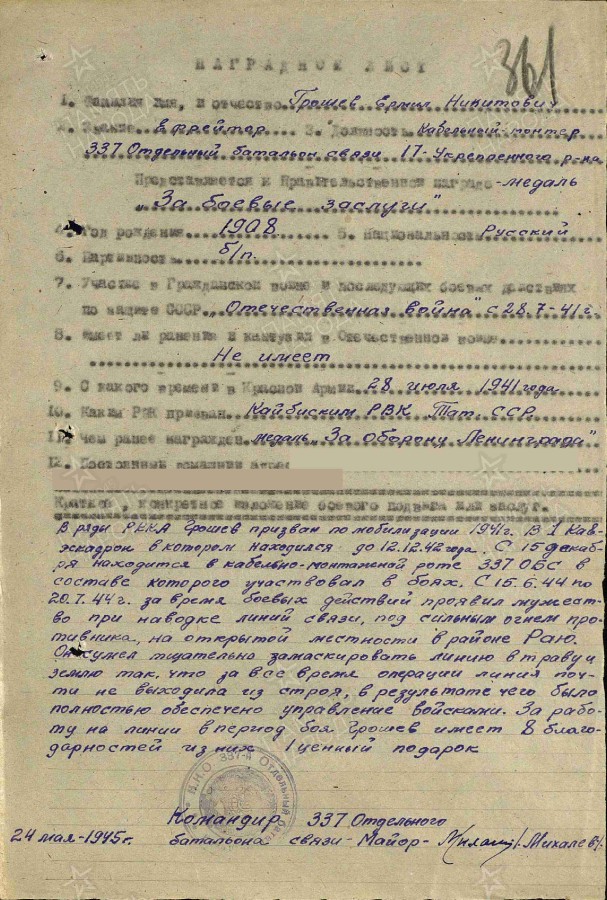 361
НАГРАДНОЙ ЛИСТ
1. Фамилия имя, и отчество Грошев Ермил Никитович
2. Звание Ефрейтор 3. Должность Кабельный-монтер
337 Отдельный батальон связи 17-Укрепленного р-на
Представляется к Правительственной награде - медаль
"За боевые заслуги"
4. Год рождения 1908 5. Национальность Русский
6. Партийность б/п.
7. Участие в Гражданской войне и последующих боевых действиях
по защите СССР "Отечественная война" с 28.7-41г.
8. Имеет ли ранения и контузии в Отечественной войне
Не имеет
9. С какого времени в Красной Армии 28 июля 1941 года
10. Каким РВК призван Кайбиским РВК Тат. ССР
11. Чем ранее награжден медаль "За оборону Ленинграда"
12. Постоянный домашний адрес
Краткое, конкретное изложение боевого подвига или заслуг.
В ряды РККА Грошев призван по мобилизации 1941г. В 1 Кав-
эскадрон в котором находился до 12.12.42 года. С 15 декаб-
ря находится в кабельно-монтажной роте 337 ОБС в
составе которого участвовал в боях. С 15.6.44 по
20.7.44г. за время боевых действий проявил мужест-
во при наводке линий связи, под сильным огнем про-
тивника, на открытой местности в районе Раю.
Он сумел тщательно замаскировать линию в траву и
землю так, что за все время операции линия поч-
ти не выходила из строя, в результате чего было
полностью обеспечено управление войсками. За рабо-
ту на линии в период боя Грошев имеет 8 благо-
дарностей из них 1 ценный подарок
Н.К.О. 337-й Отдельный
Командир 337 Отдельного
24 мая-1945г. батальона связи - Майор - /Михалев/.